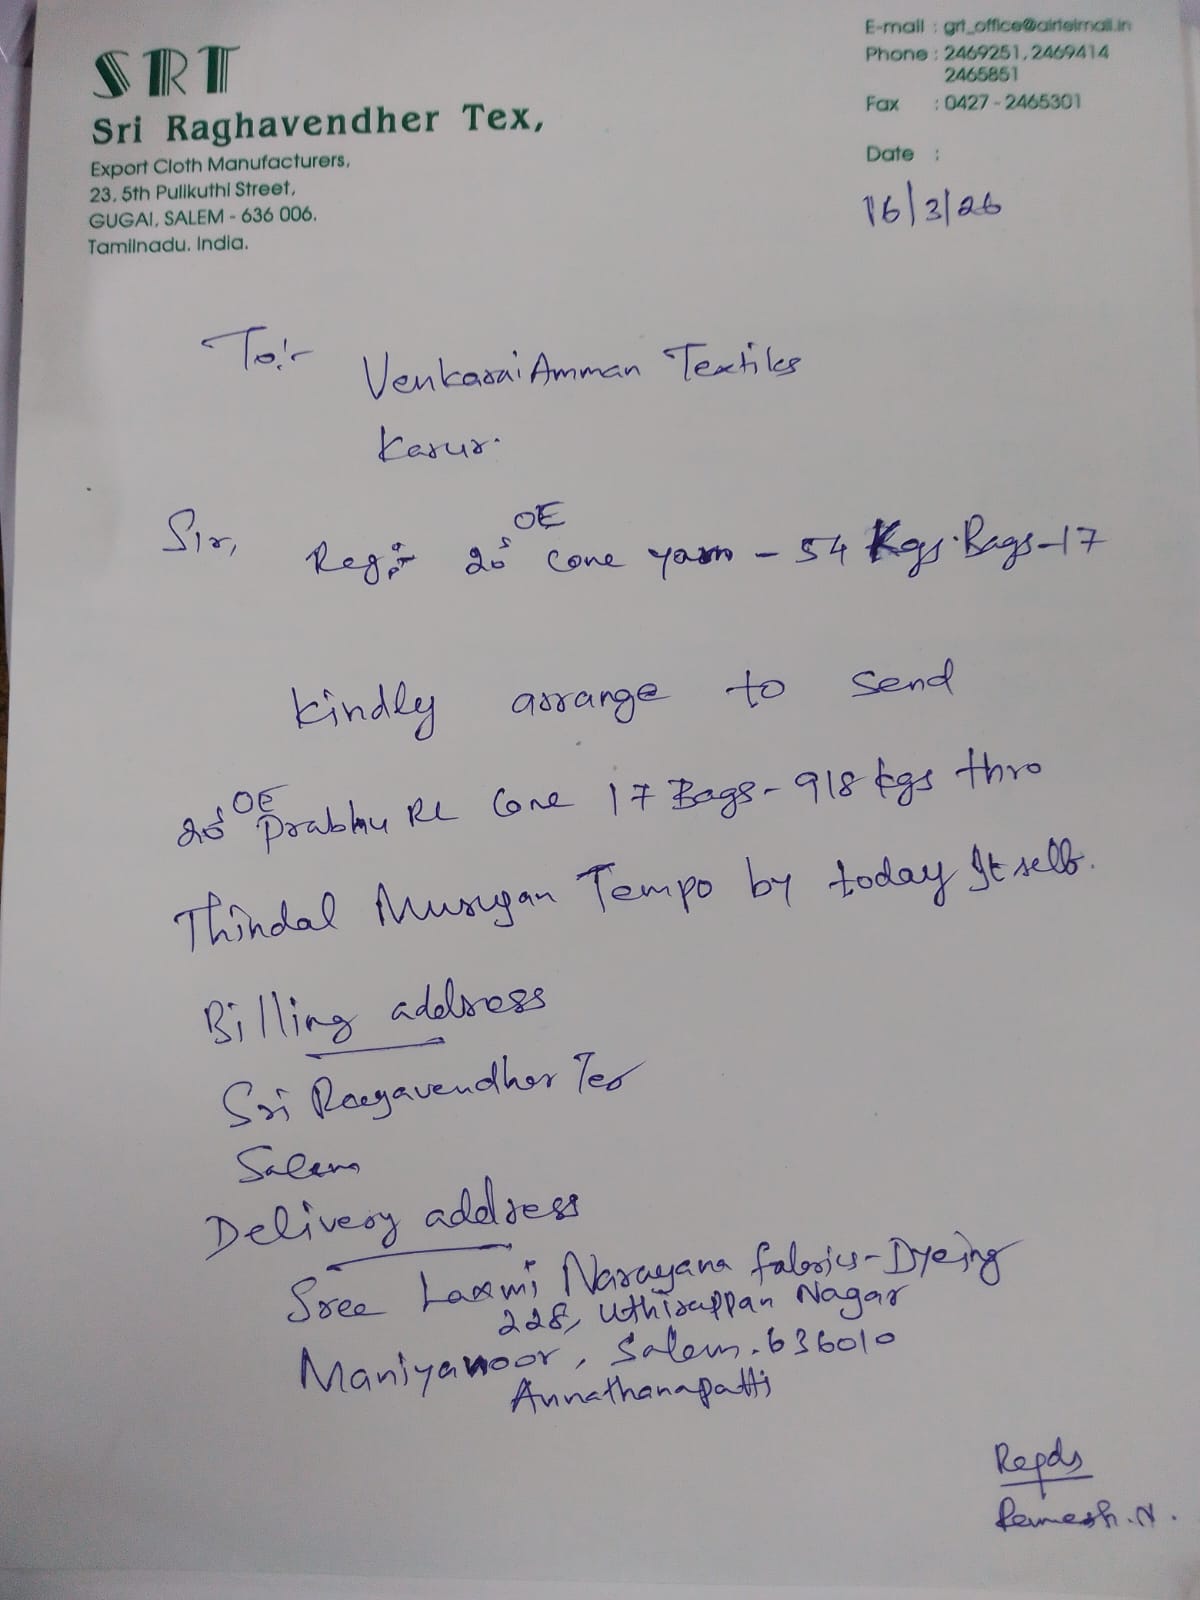 SRT
Sri Raghavendher Tex,
Export Cloth Manufacturers,
23, 5th Pulikuthi Street,
GUGAI, SALEM - 636 006.
Tamilnadu. India.
E-mail : grt_office@airtelmail.in
Phone : 2469251, 2469414
2465851
Fax : 0427 - 2465301
Date :
16/3/26
To:-
Venkarai Amman Textiles
Karur.
Sir,
Reg:- 20s OE Cone yarn - 54 Kgs. Bags-17
Kindly arrange to send
20s OE Prabhu RL Cone 17 Bags - 918 kgs thro
Thindal Murugan Tempo by today It self.
Billing address
Sri Raagavendher Tex
Salem
Delivery address
Sree Laxmi Narayana fabrics - Dyeing
228, Uthirappan Nagar
Maniyanoor, Salem. 636010
Annathanapatti
Regds
Ramesh. N.